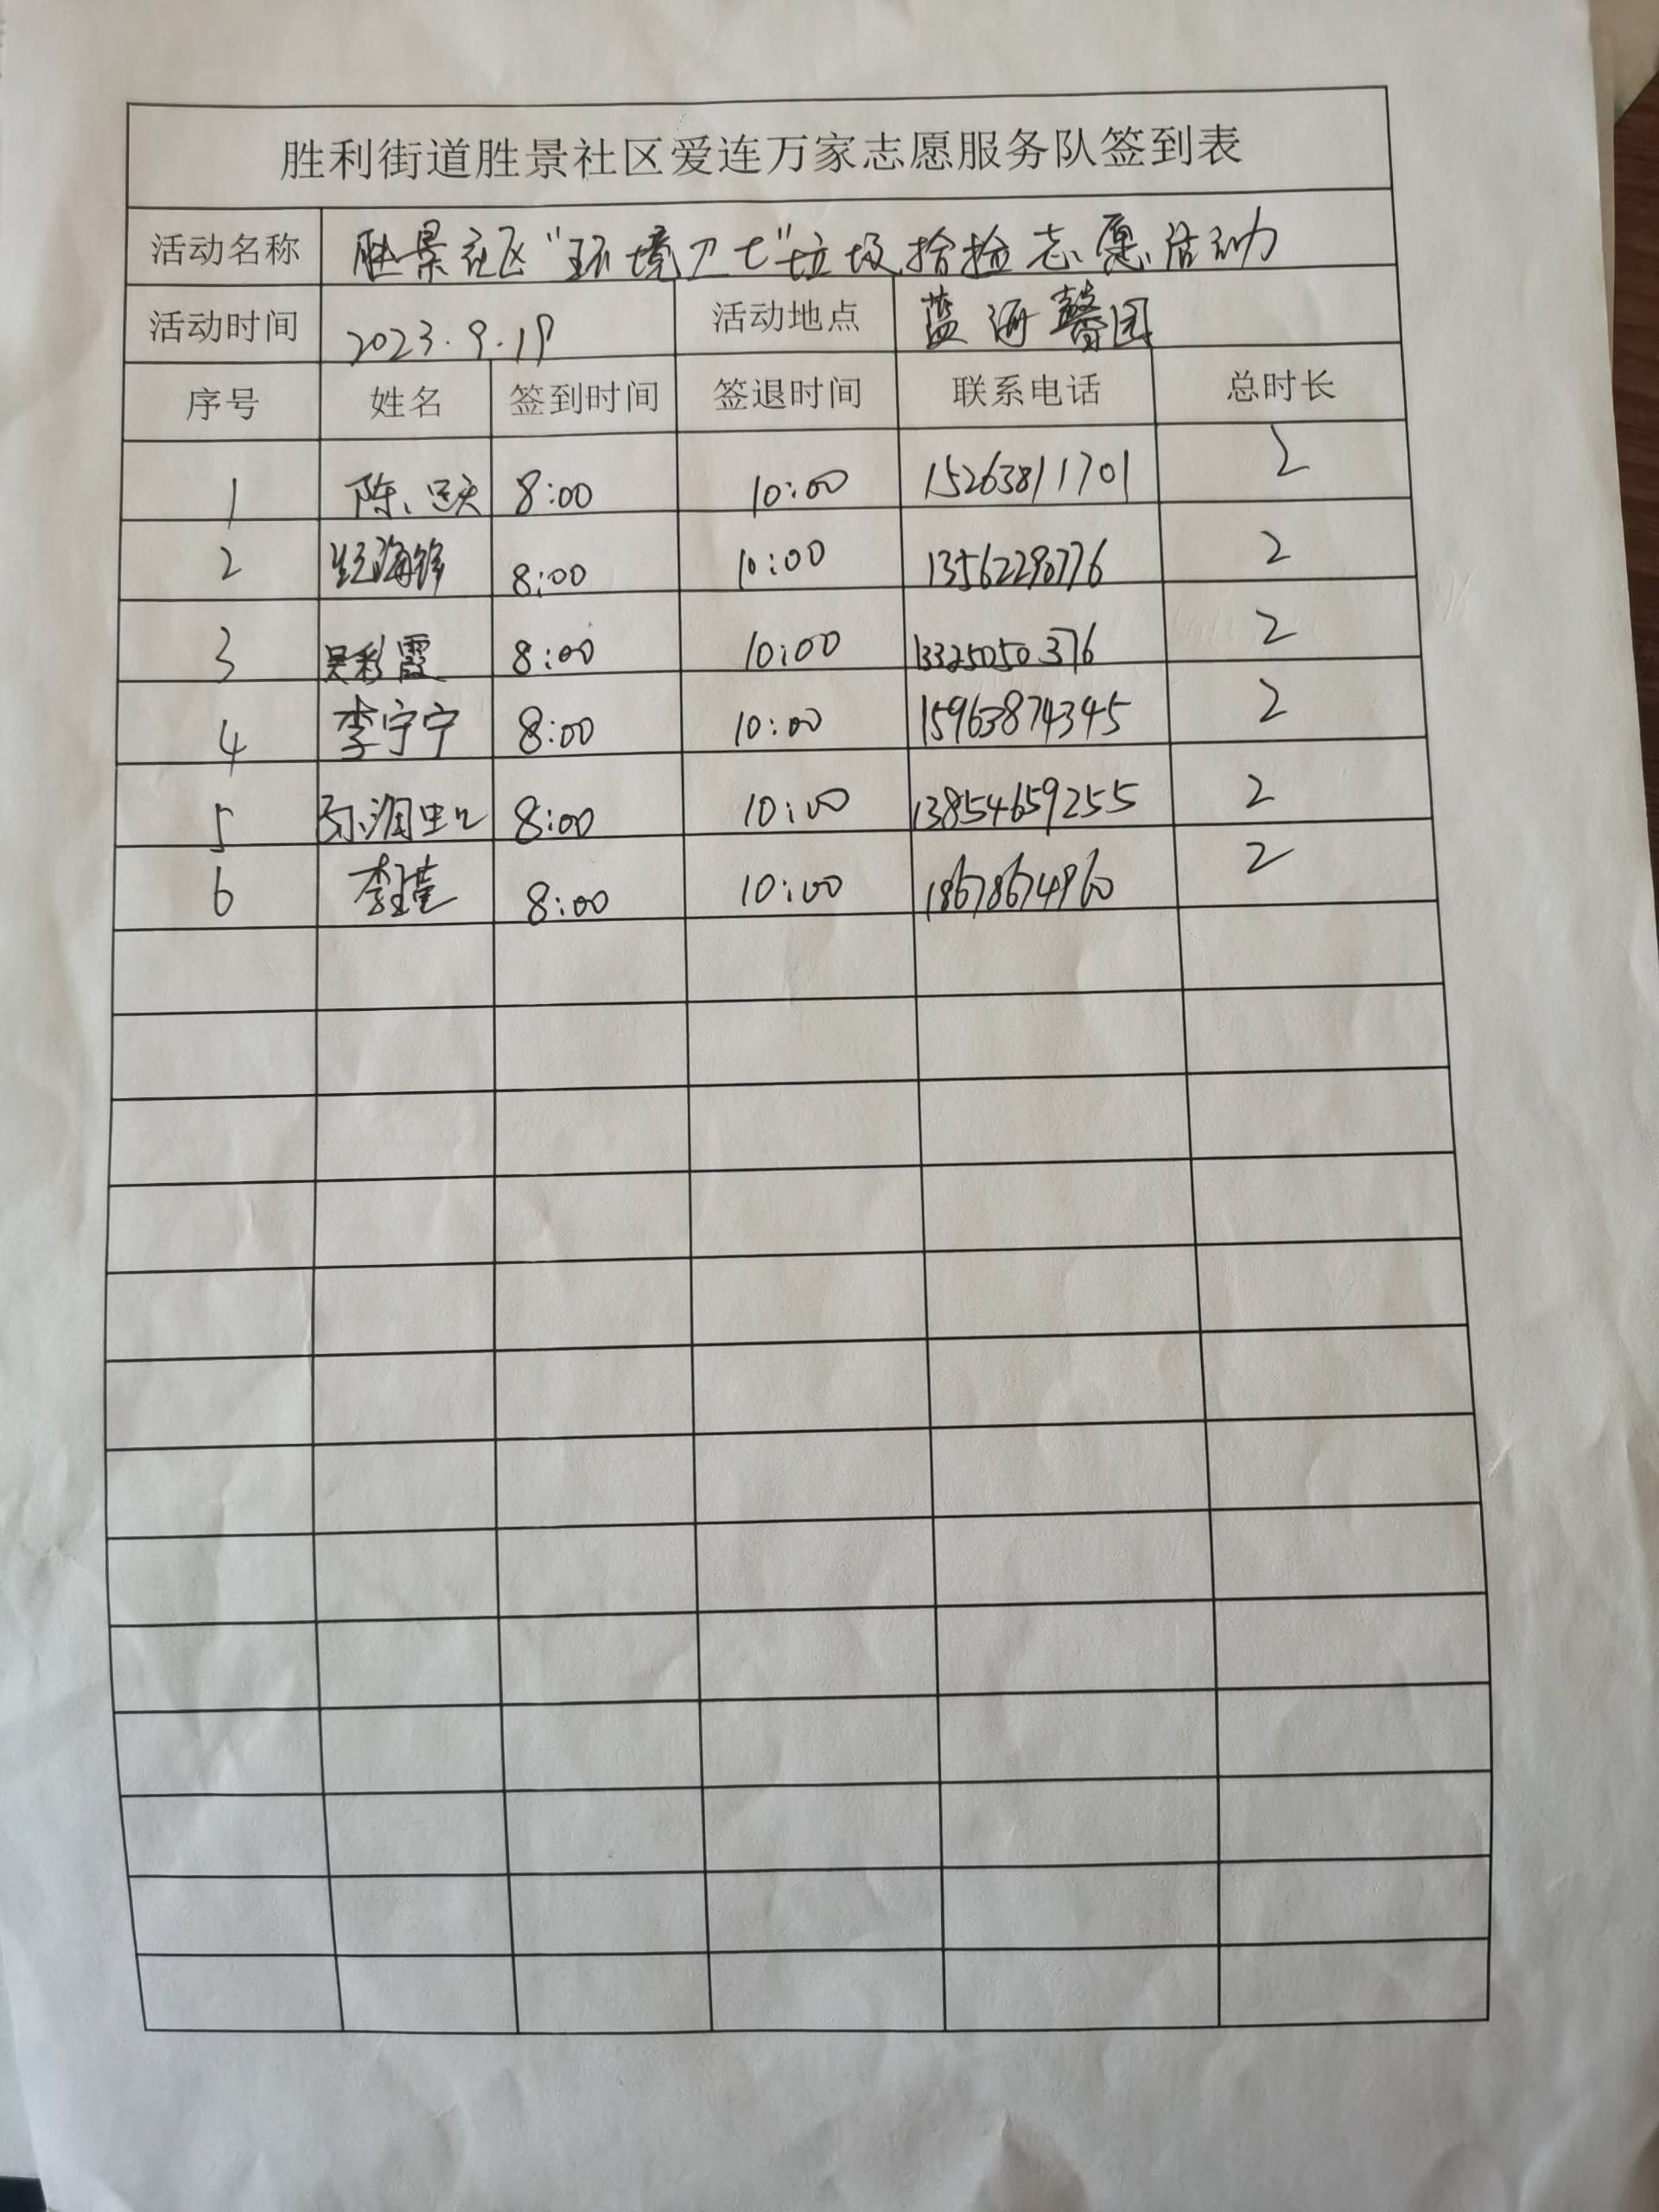 胜利街道胜景社区爱连万家志愿服务队签到表
活动名称 胜景社区“环境卫士”垃圾捡拾志愿活动
活动时间 2023.9.19 活动地点 蓝海馨园
序号 姓名 签到时间 签退时间 联系电话 总时长
1 陈 8:00 10:00 15263811701 2
2 海锋 8:00 10:00 13562290776 2
3 吴彩霞 8:00 10:00 13325050376 2
4 李宁宁 8:00 10:00 15963874345 2
5 8:00 10:00 13854659255 2
6 李莹 8:00 10:00 18678674960 2